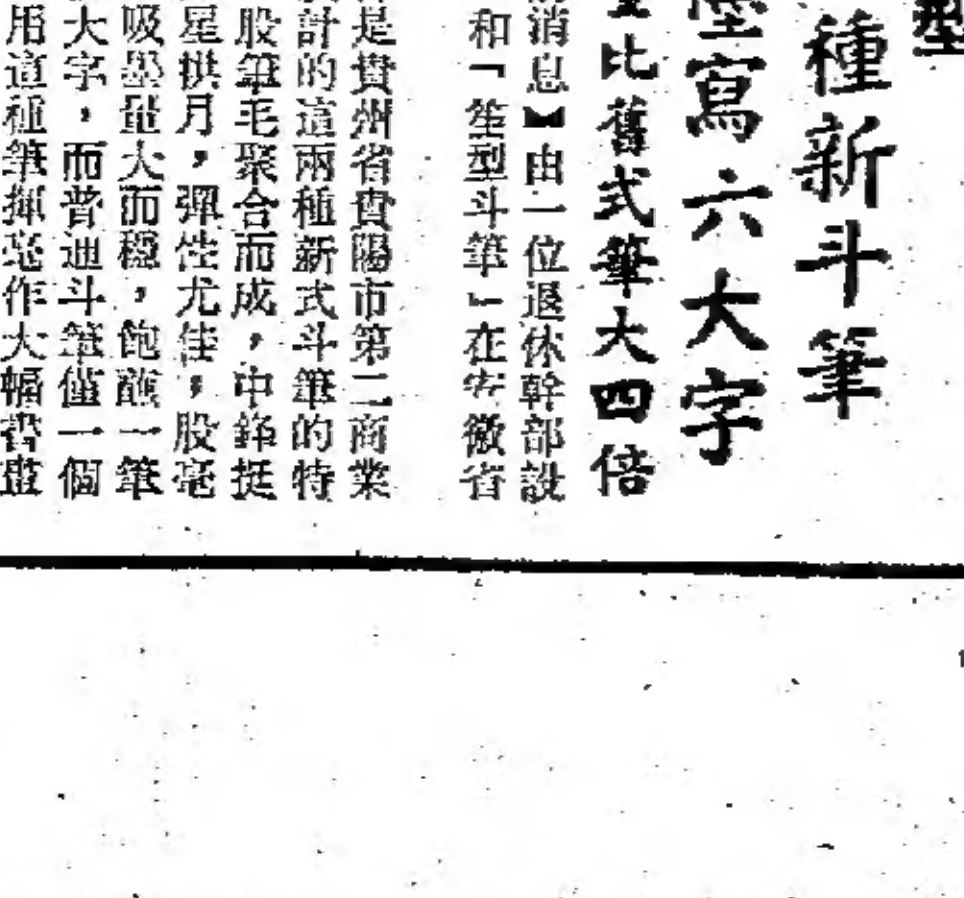 型
種新斗筆
寫六大字
比舊式筆大四倍
消息】由一位退休幹部設
和「笙型斗筆」在安徽省
是貴州省貴陽市第二商業
計的這兩種新式斗筆的特
股筆毛聚合而成，中鋒挺
星拱月，彈性尤佳，股毫
吸墨量大而穩，飽蘸一筆
大字，而普通斗筆僅一個
用這種筆揮毫作大幅書畫